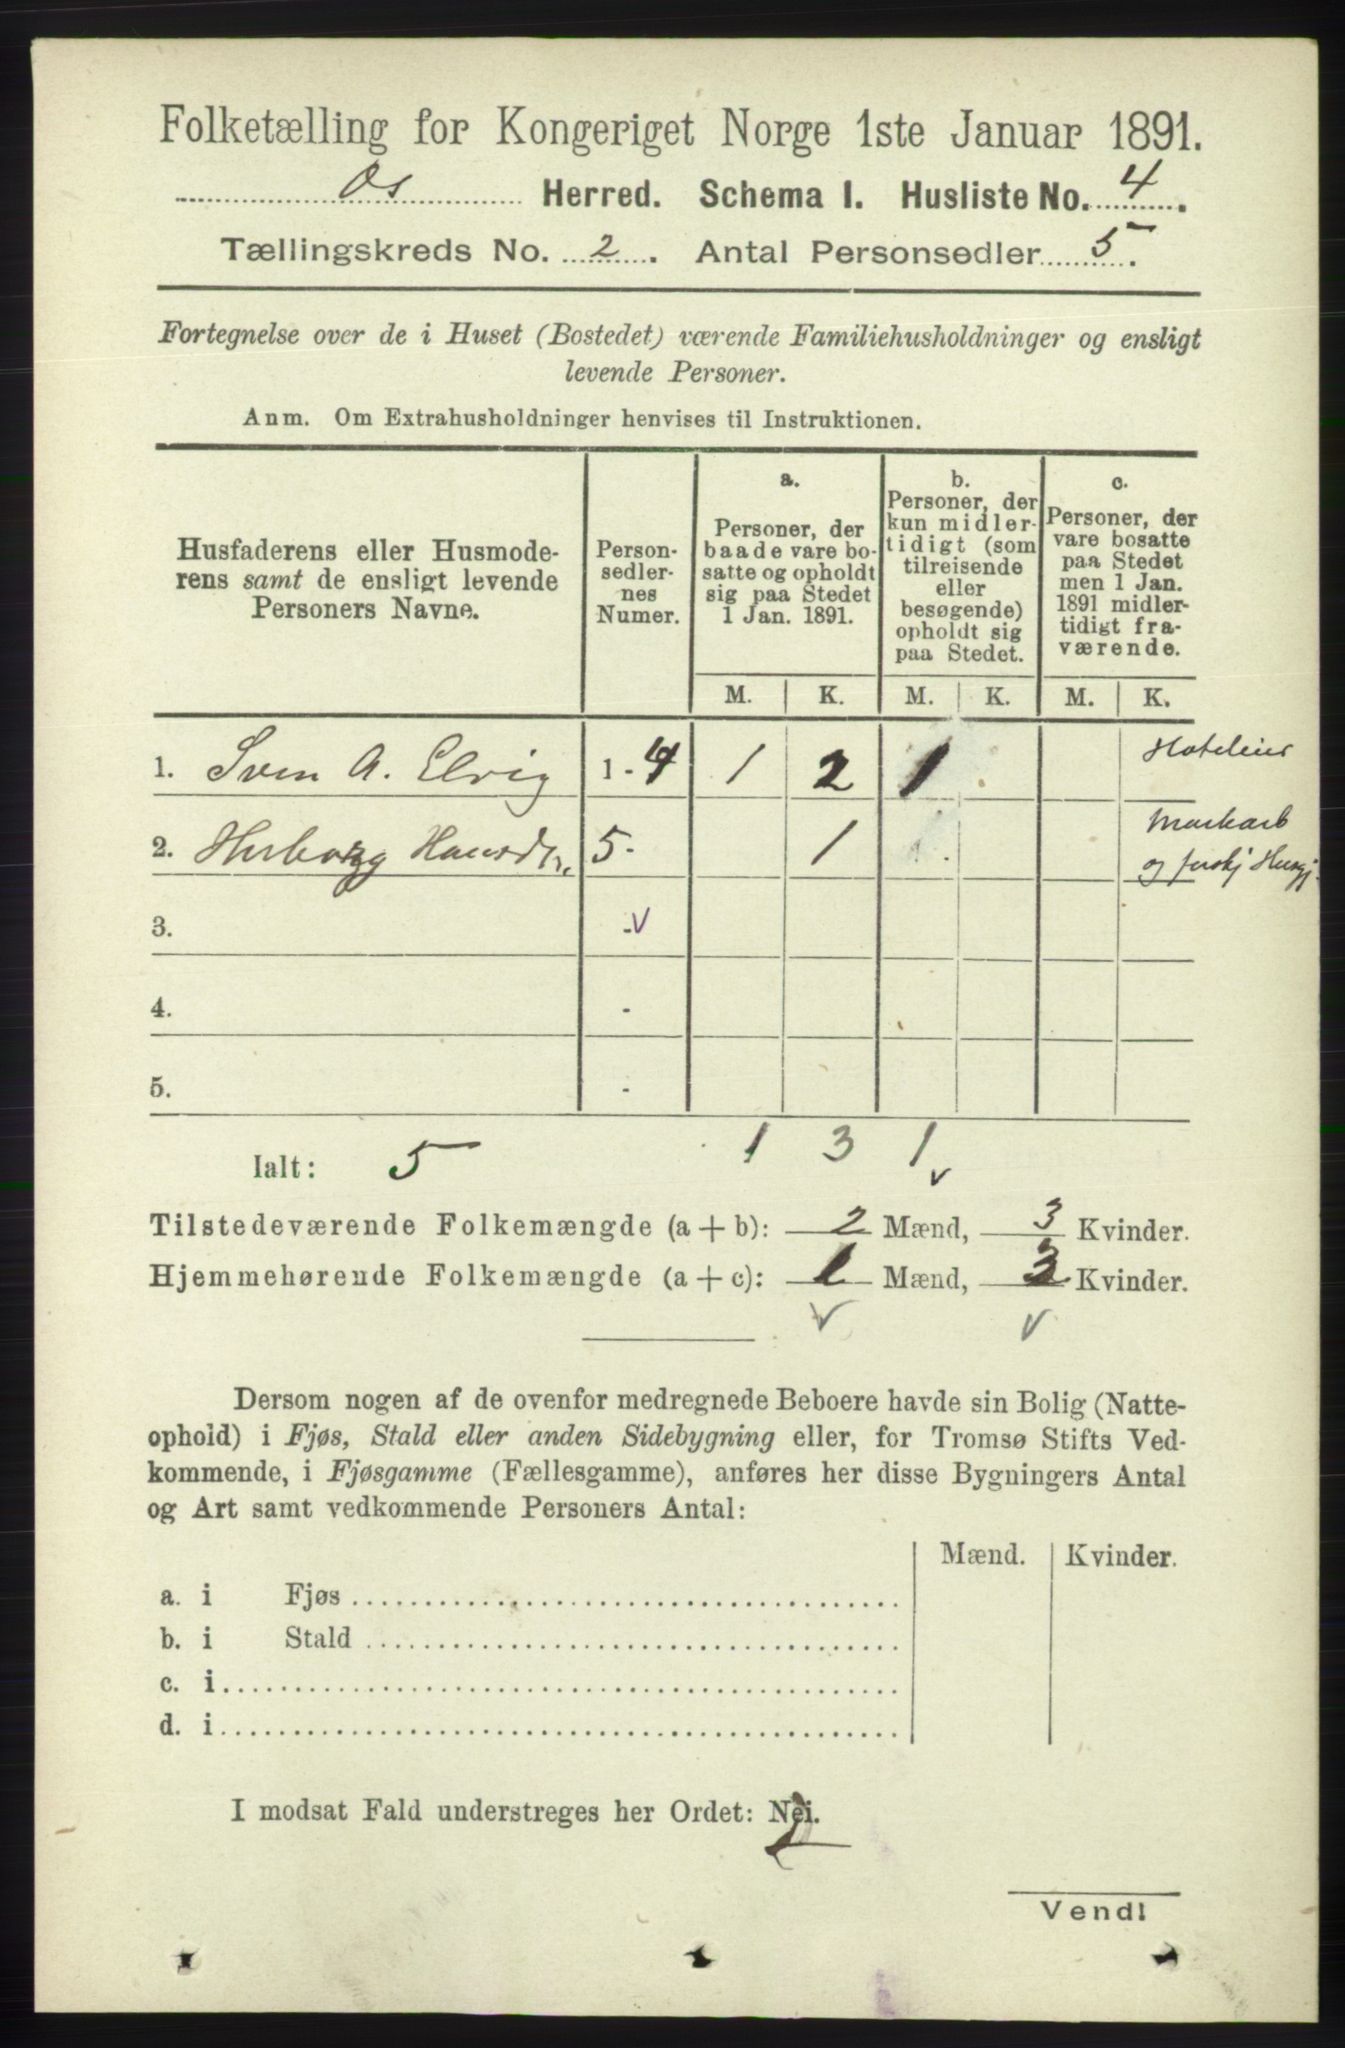 Folketælling for Kongeriget Norge 1ste Januar 1891.
Os Herred. Schema I. Husliste No. 4.
Tællingskreds No. 2. Antal Personsedler 5.
Fortegnelse over de i Huset (Bostedet) værende Familiehusholdninger og ensligt
levende Personer.
Anm. Om Extrahusholdninger henvises til Instruktionen.
Husfaderens eller Husmode-
rens samt de ensligt levende
Personers Navne.
Person-
sedler-
nes
Numer.
a.
Personer, der
baade vare bo-
satte og opholdt
sig paa Stedet
1 Jan. 1891.
b.
Personer, der
kun midler-
tidigt (som
tilreisende
eller
besøgende)
opholdt sig
paa Stedet.
c.
Personer, der
vare bosatte
paa Stedet
men 1 Jan.
1891 midler-
tidigt fra-
værende.
M. K. M. K. M. K.
1. Sven A. Elvig 1-4 1 2 1 Hoteleier
2. Herborg Hansdtr. 5- 1 Markarb
og forskj Husgj.
3. - v
4. -
5. -
Ialt: 5 1 3 1
v
Tilstedeværende Folkemængde (a + b): 2 Mænd, 3 Kvinder.
Hjemmehørende Folkemængde (a + c): 1 Mænd, 3 Kvinder.
v v
Dersom nogen af de ovenfor medregnede Beboere havde sin Bolig (Natte-
ophold) i Fjøs, Stald eller anden Sidebygning eller, for Tromsø Stifts Ved-
kommende, i Fjøsgamme (Fællesgamme), anføres her disse Bygningers Antal
og Art samt vedkommende Personers Antal:
Mænd. Kvinder.
a. i Fjøs
b. i Stald
c. i
d. i
I modsat Fald understreges her Ordet: Nei.
Vend!